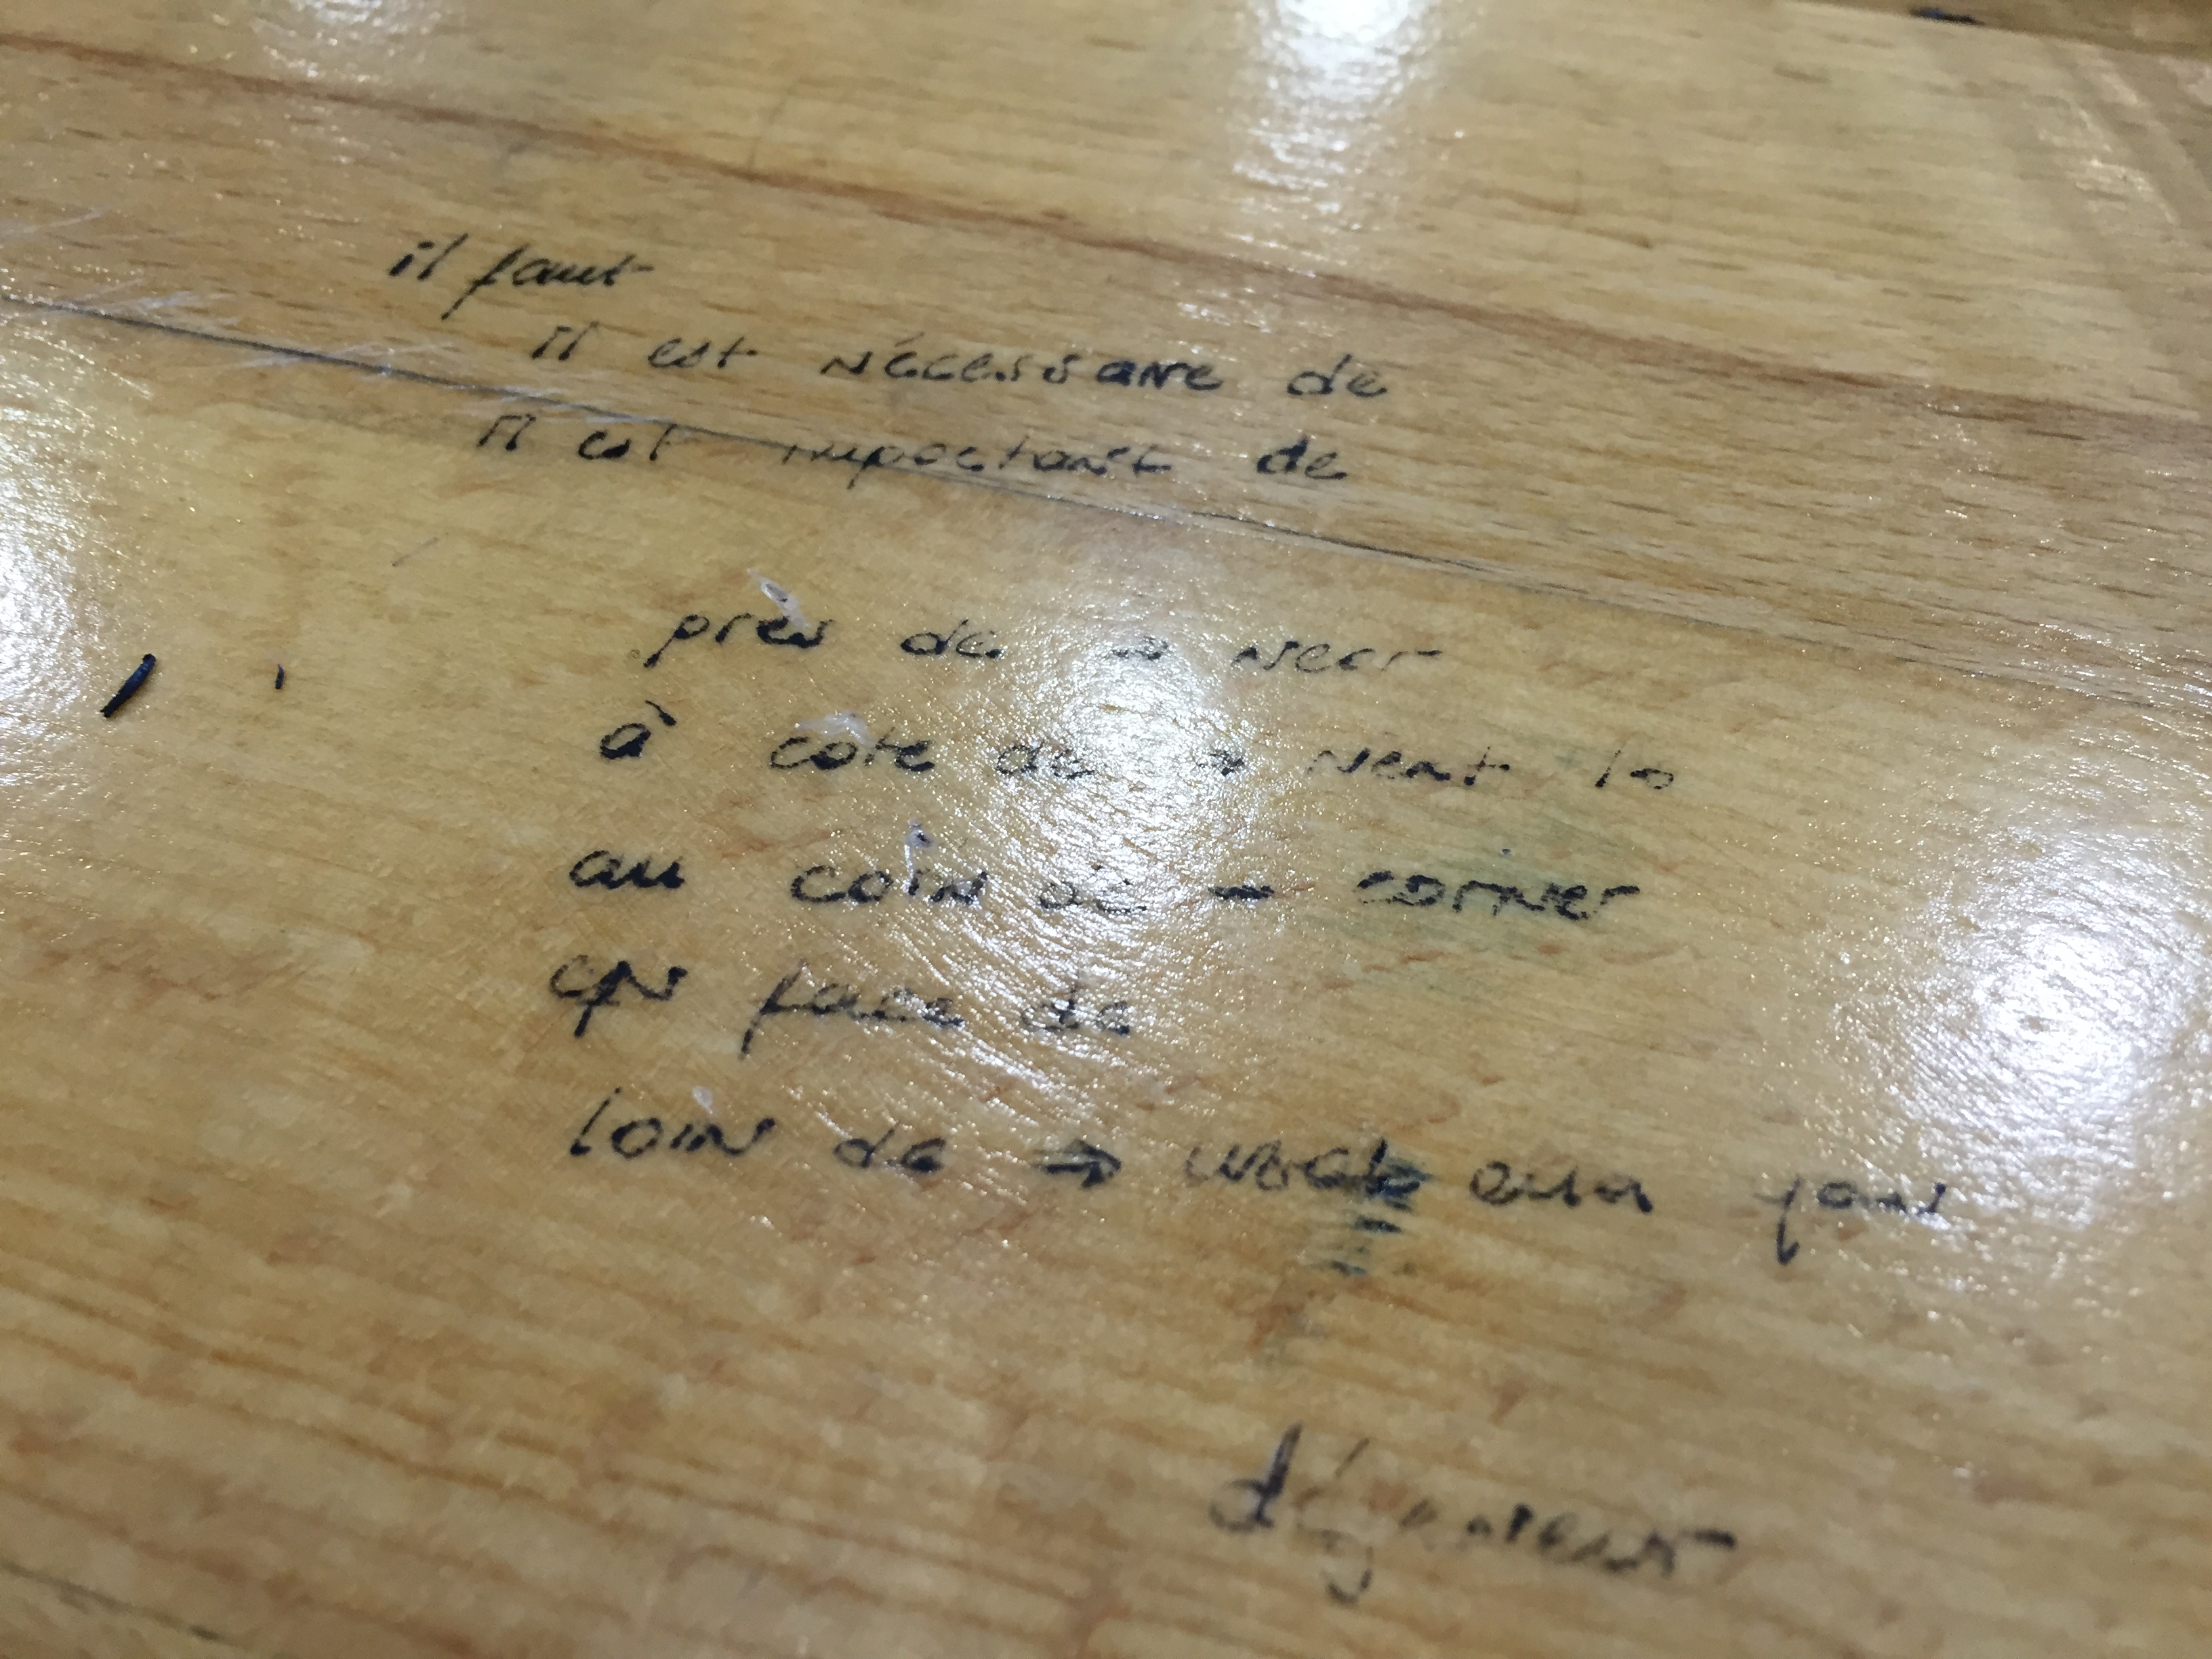 il faut
il est nécessaire de
il est important de
près de → near
à côte de → next to
au coin de → corner
en face de
loin de →